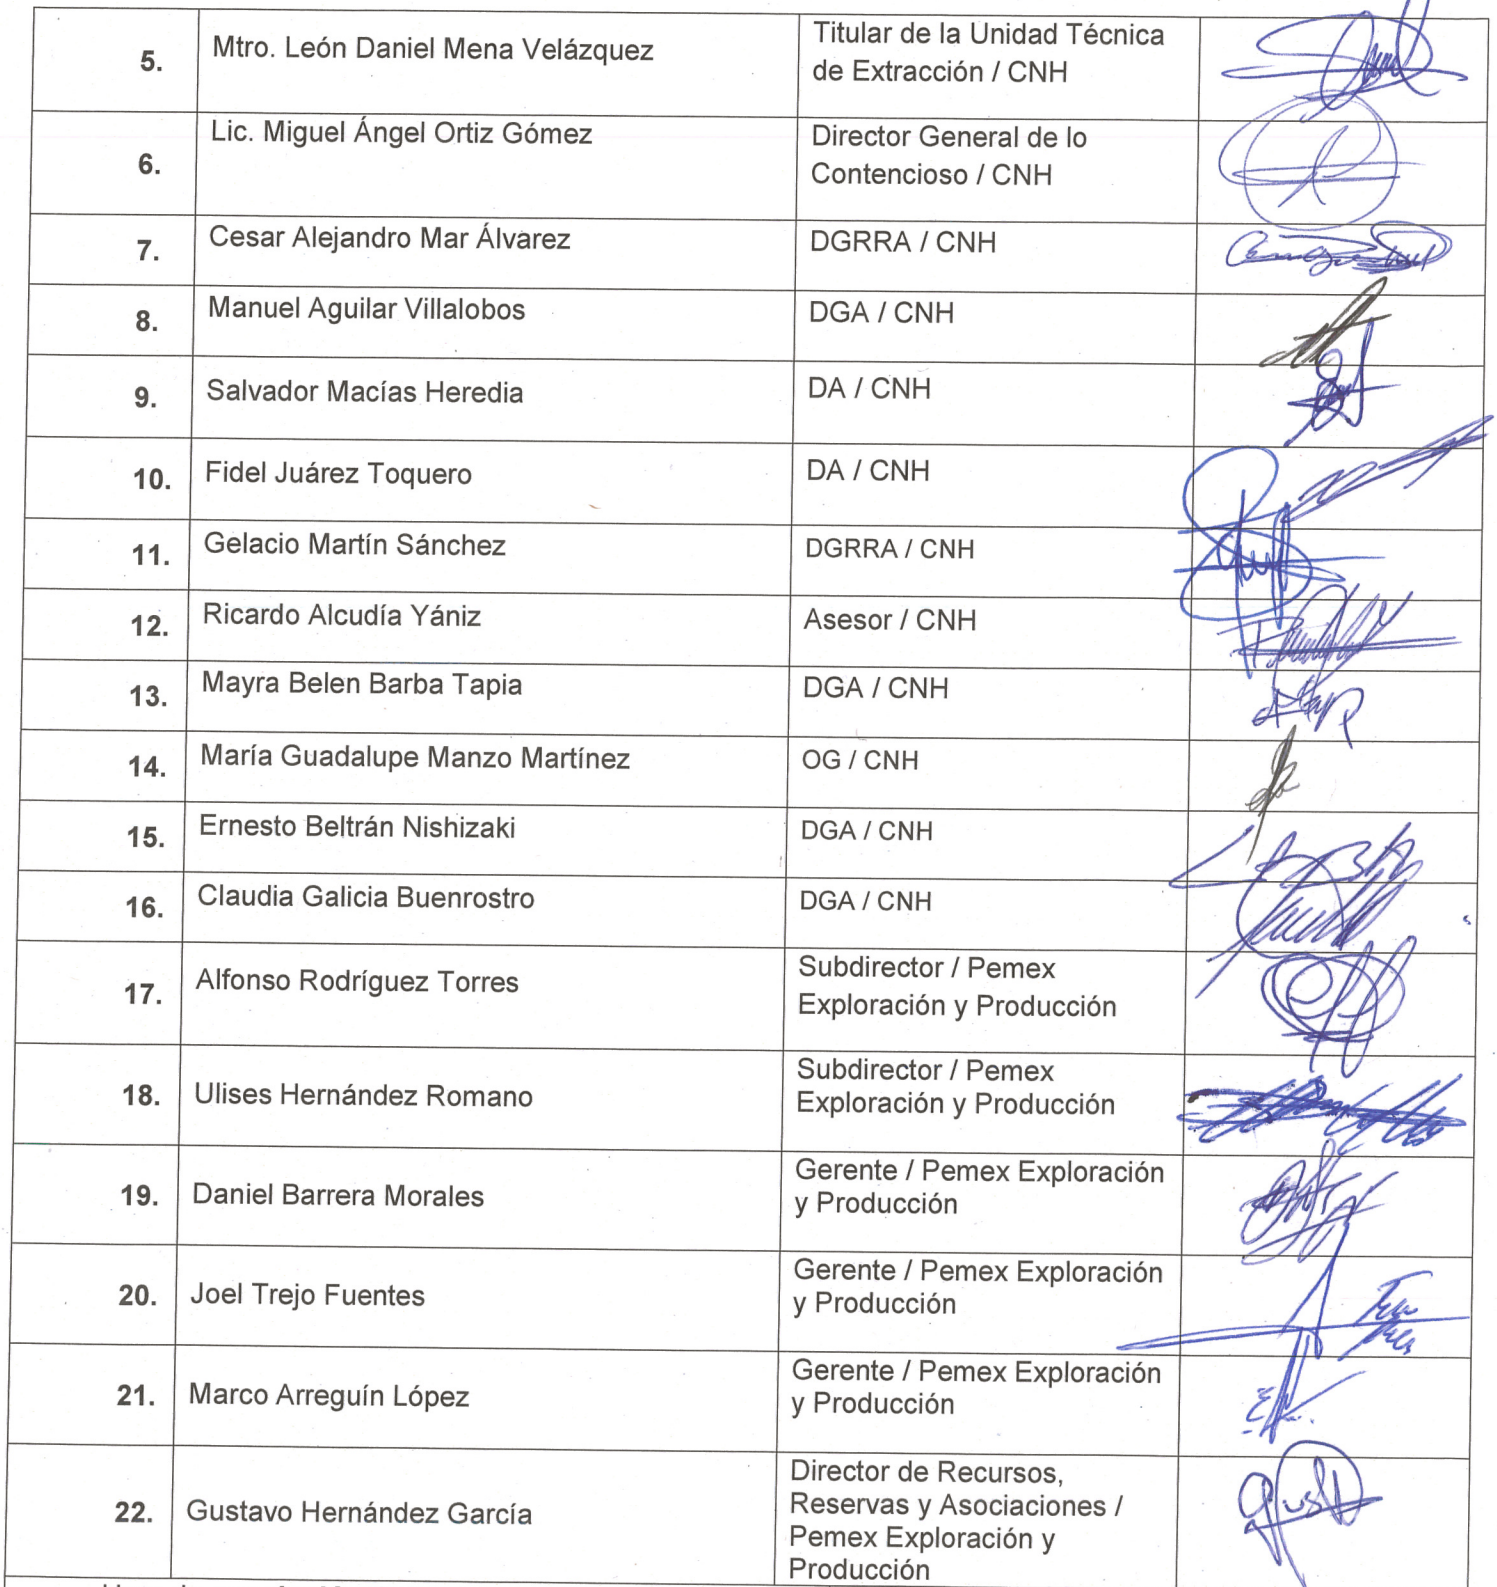 5. Mtro. León Daniel Mena Velázquez Titular de la Unidad Técnica
de Extracción / CNH
6. Lic. Miguel Ángel Ortiz Gómez Director General de lo
Contencioso / CNH
7. Cesar Alejandro Mar Álvarez DGRRA / CNH
8. Manuel Aguilar Villalobos DGA / CNH
9. Salvador Macías Heredia DA / CNH
10. Fidel Juárez Toquero DA / CNH
11. Gelacio Martín Sánchez DGRRA / CNH
12. Ricardo Alcudía Yániz Asesor / CNH
13. Mayra Belen Barba Tapia DGA / CNH
14. María Guadalupe Manzo Martínez OG / CNH
15. Ernesto Beltrán Nishizaki DGA / CNH
16. Claudia Galicia Buenrostro DGA / CNH
17. Alfonso Rodríguez Torres Subdirector / Pemex
Exploración y Producción
18. Ulises Hernández Romano Subdirector / Pemex
Exploración y Producción
19. Daniel Barrera Morales Gerente / Pemex Exploración
y Producción
20. Joel Trejo Fuentes Gerente / Pemex Exploración
y Producción
21. Marco Arreguín López Gerente / Pemex Exploración
y Producción
22. Gustavo Hernández García Director de Recursos,
Reservas y Asociaciones /
Pemex Exploración y
Producción